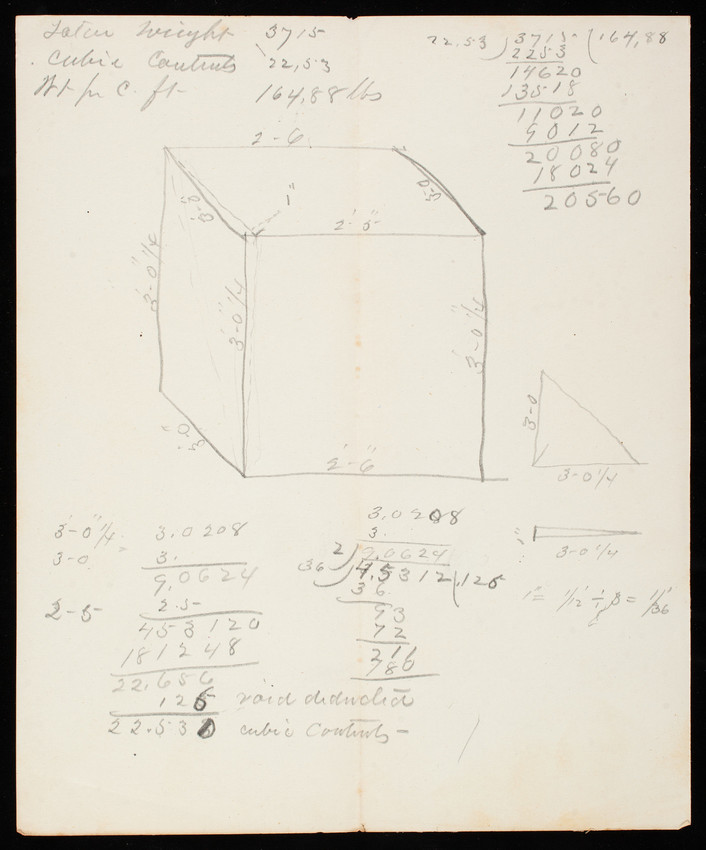 Total Weight 3715
Cubic Contents 22,53
Wt pr C. ft 164,88 lbs
22,53 ) 3715 ( 164,88
2253
14620
13518
11020
9012
20080
18024
20560
2-6
3-0
1"
3-0
2'-5"
3'-0"1/4
3-0"1/4
3-0"1/4
3'-0"
2'-6"
3-0
3-0 1/4
1"
3-0 1/4
1" = 1/12 ÷ 3 = 1/36
3'-0"1/4 = 3.0208
3-0 3.
9,0624
2-5 2.5
453120
181248
22.656
126 void deducted
22.530 cubic Contents -
3.0208
3.
2 ) 9.0624
36 ) 4.5312 ( .125
36
93
72
211
180